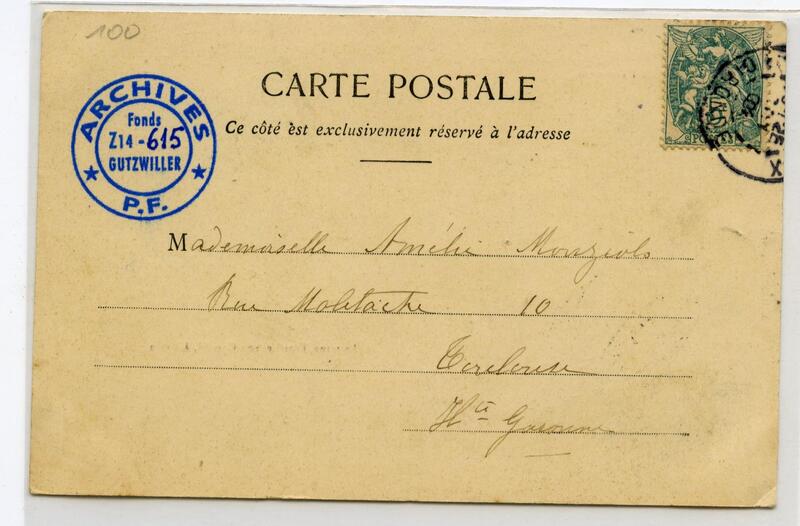 100
ARCHIVES
Fonds
Z14 - 615
GUTZWILLER
P.F.
CARTE POSTALE
Ce côté est exclusivement réservé à l'adresse
Mademoiselle Amélie
Rue 10
Toulouse
Hte Garonne